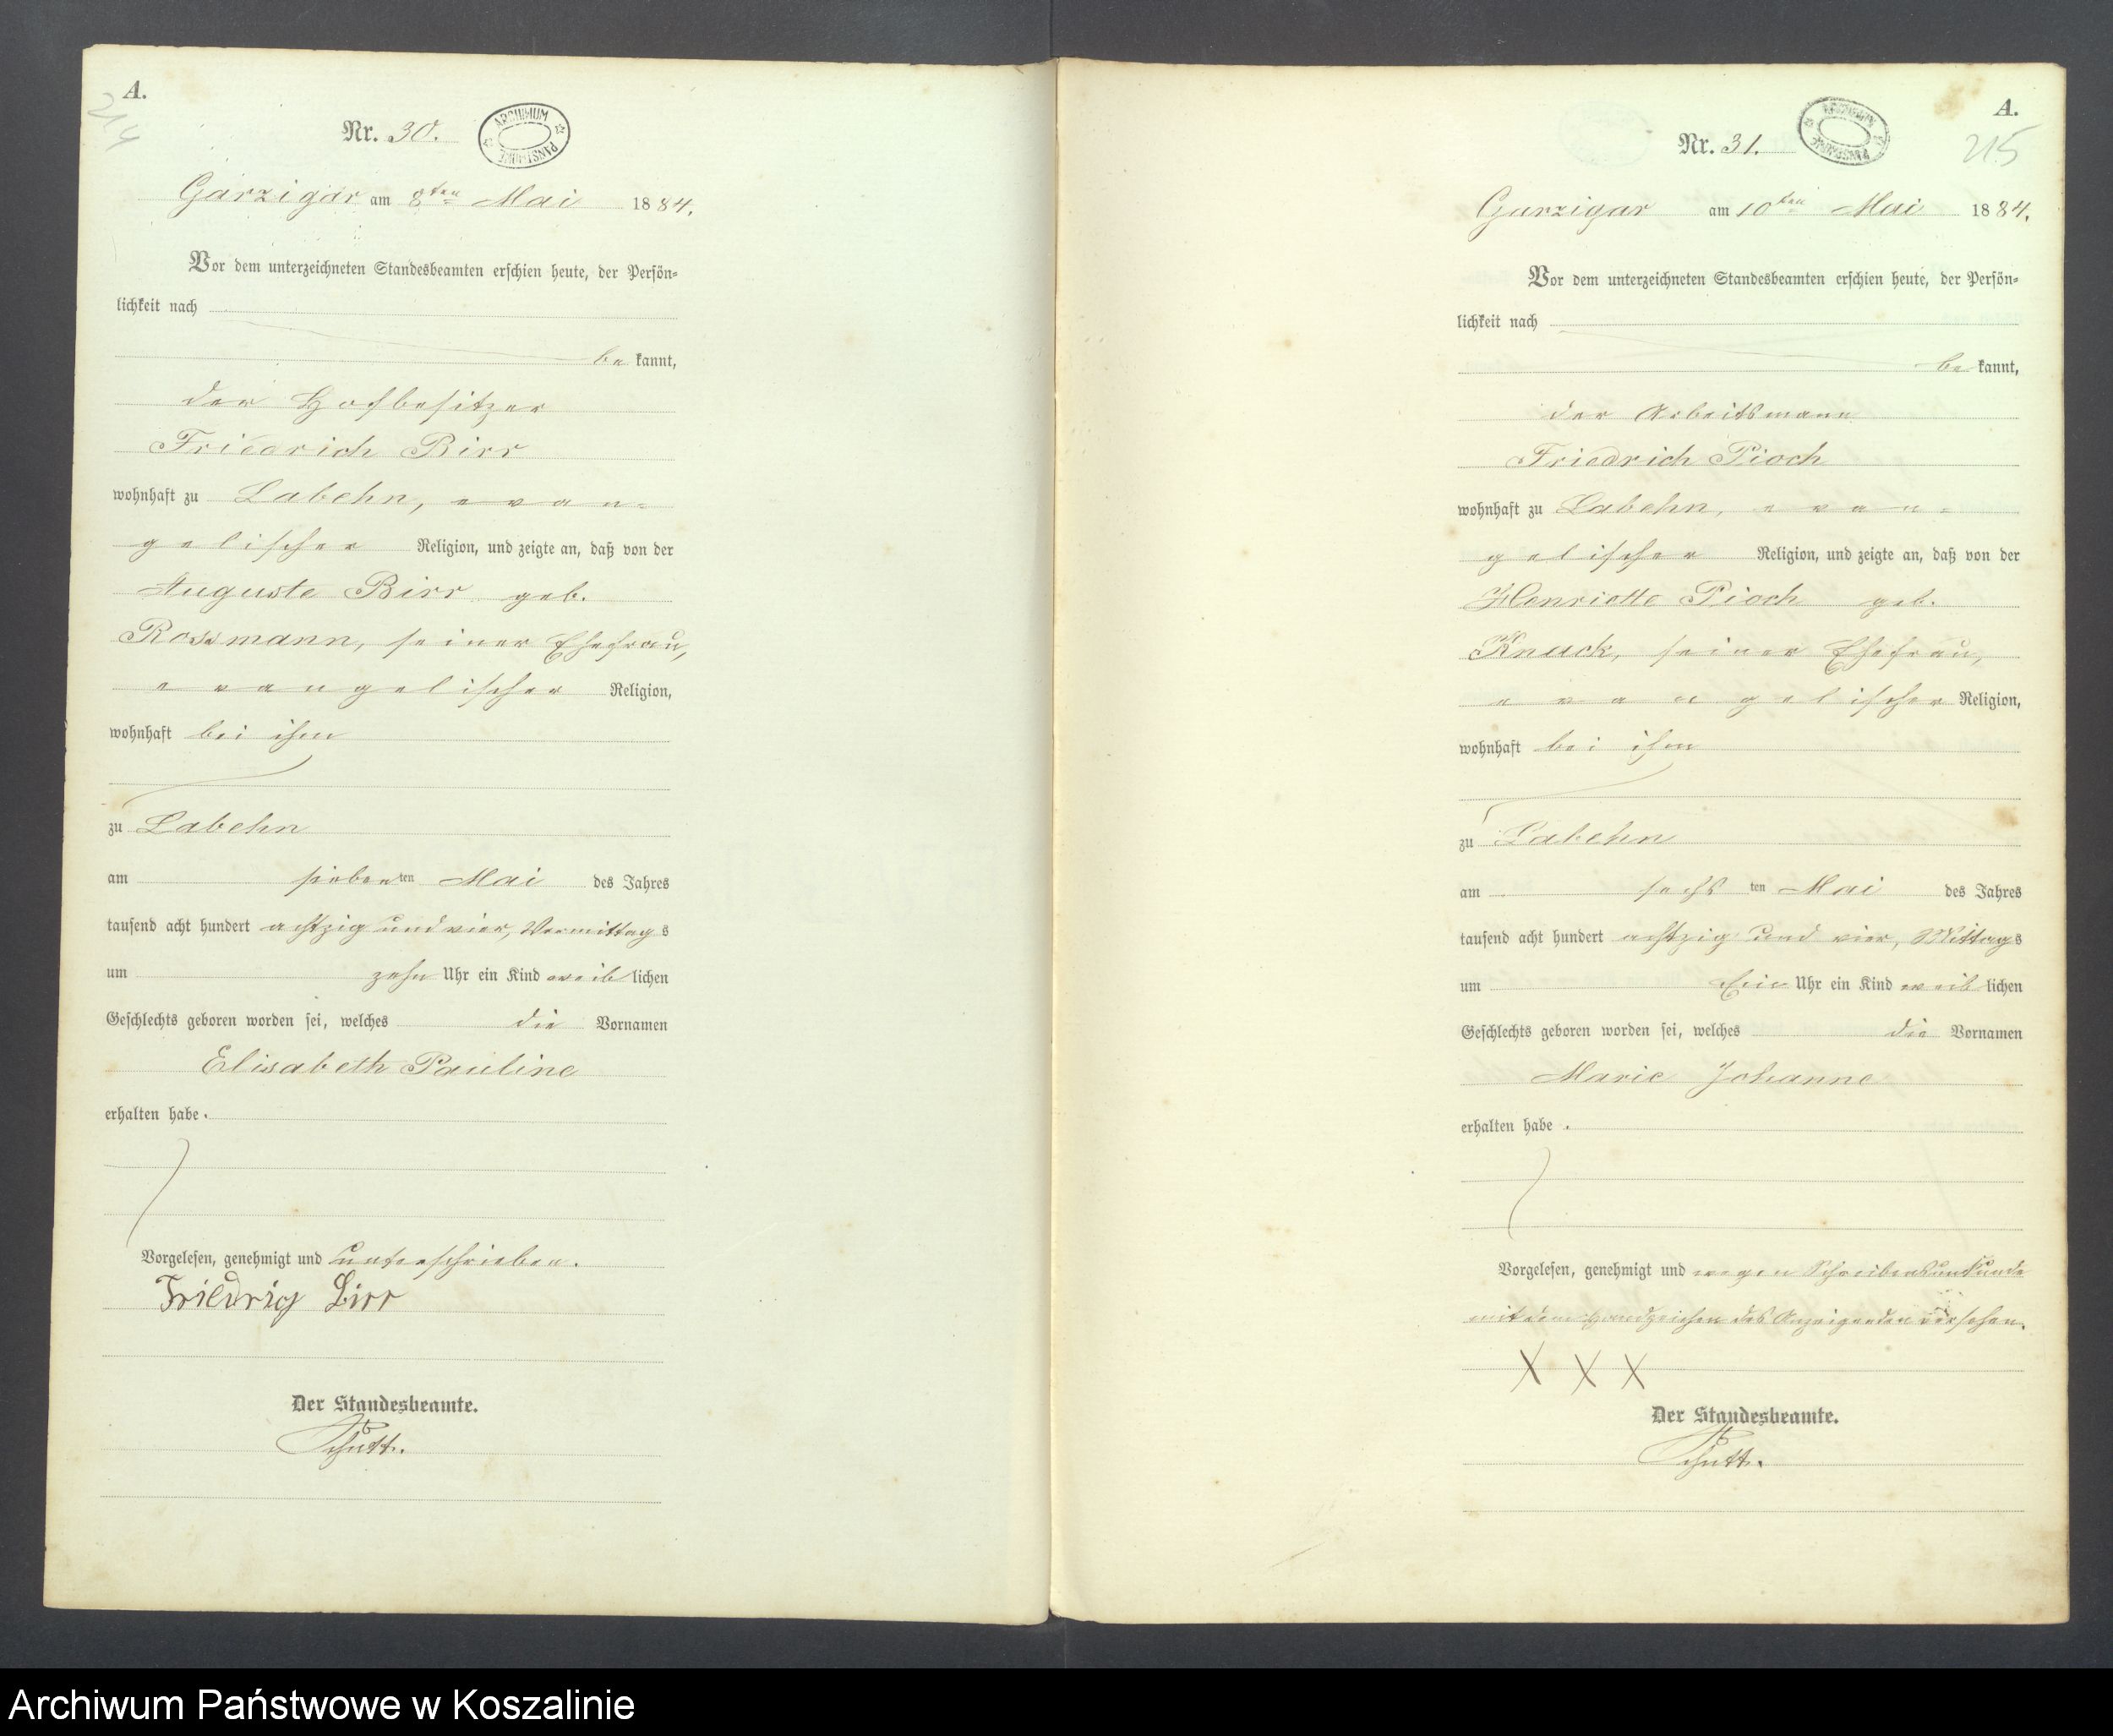 A.
214
Nr. 30.
ARCHIWUM PAŃSTWOWE
Garzigar am 8ten Mai 1884.
Vor dem unterzeichneten Standesbeamten erschien heute, der Persön-
lichkeit nach
bekannt,
der Hofbesitzer
Friedrich Birr
wohnhaft zu Labehn, evan-
gelischer Religion, und zeigte an, daß von der
Auguste Birr geb.
Rossmann, seiner Ehefrau,
evangelischer Religion,
wohnhaft bei ihm
zu Labehn
am siebenten Mai des Jahres
tausend acht hundert achtzig und vier, Vormittags
um zehn Uhr ein Kind weiblichen
Geschlechts geboren worden sei, welches die Vornamen
Elisabeth Pauline
erhalten habe.
Vorgelesen, genehmigt und unterschrieben.
Friedrig Birr
Der Standesbeamte.
Schütt.
A.
215
Nr. 31.
ARCHIWUM PAŃSTWOWE
Garzigar am 10ten Mai 1884.
Vor dem unterzeichneten Standesbeamten erschien heute, der Persön-
lichkeit nach
bekannt,
der Arbeitsmann
Friedrich Pioch
wohnhaft zu Labehn, evan-
gelischer Religion, und zeigte an, daß von der
Henriette Pioch geb.
Knuck, seiner Ehefrau,
evangelischer Religion,
wohnhaft bei ihm
zu Labehn
am sechsten Mai des Jahres
tausend acht hundert achtzig und vier, Mittags
um Ein Uhr ein Kind weiblichen
Geschlechts geboren worden sei, welches die Vornamen
Marie Johanne
erhalten habe.
Vorgelesen, genehmigt und wegen Schreibensunkunde
mit dem Handzeichen des Anzeigenden versehen.
X X X
Der Standesbeamte.
Schütt.
Archiwum Państwowe w Koszalinie